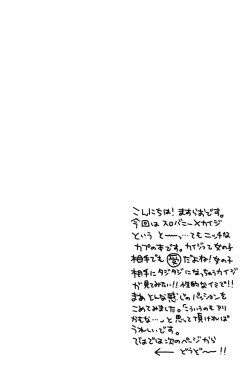 こんにちは！ますらおです。
今回は スロバニー×カイジ
という とーっ…てもニッチな
カプの本です。カイジって女の子
相手でも 受 だよね！女の子
相手にタジタジになっちゃうカイジ
が見てみたい!!性的なイミで!!
まあ とんな感じのパッションを
こめてみました。「こういうのもアリ
かもな…」と思って頂ければ
うれしいです。
ではでは次のページから
← どうぞ〜!!